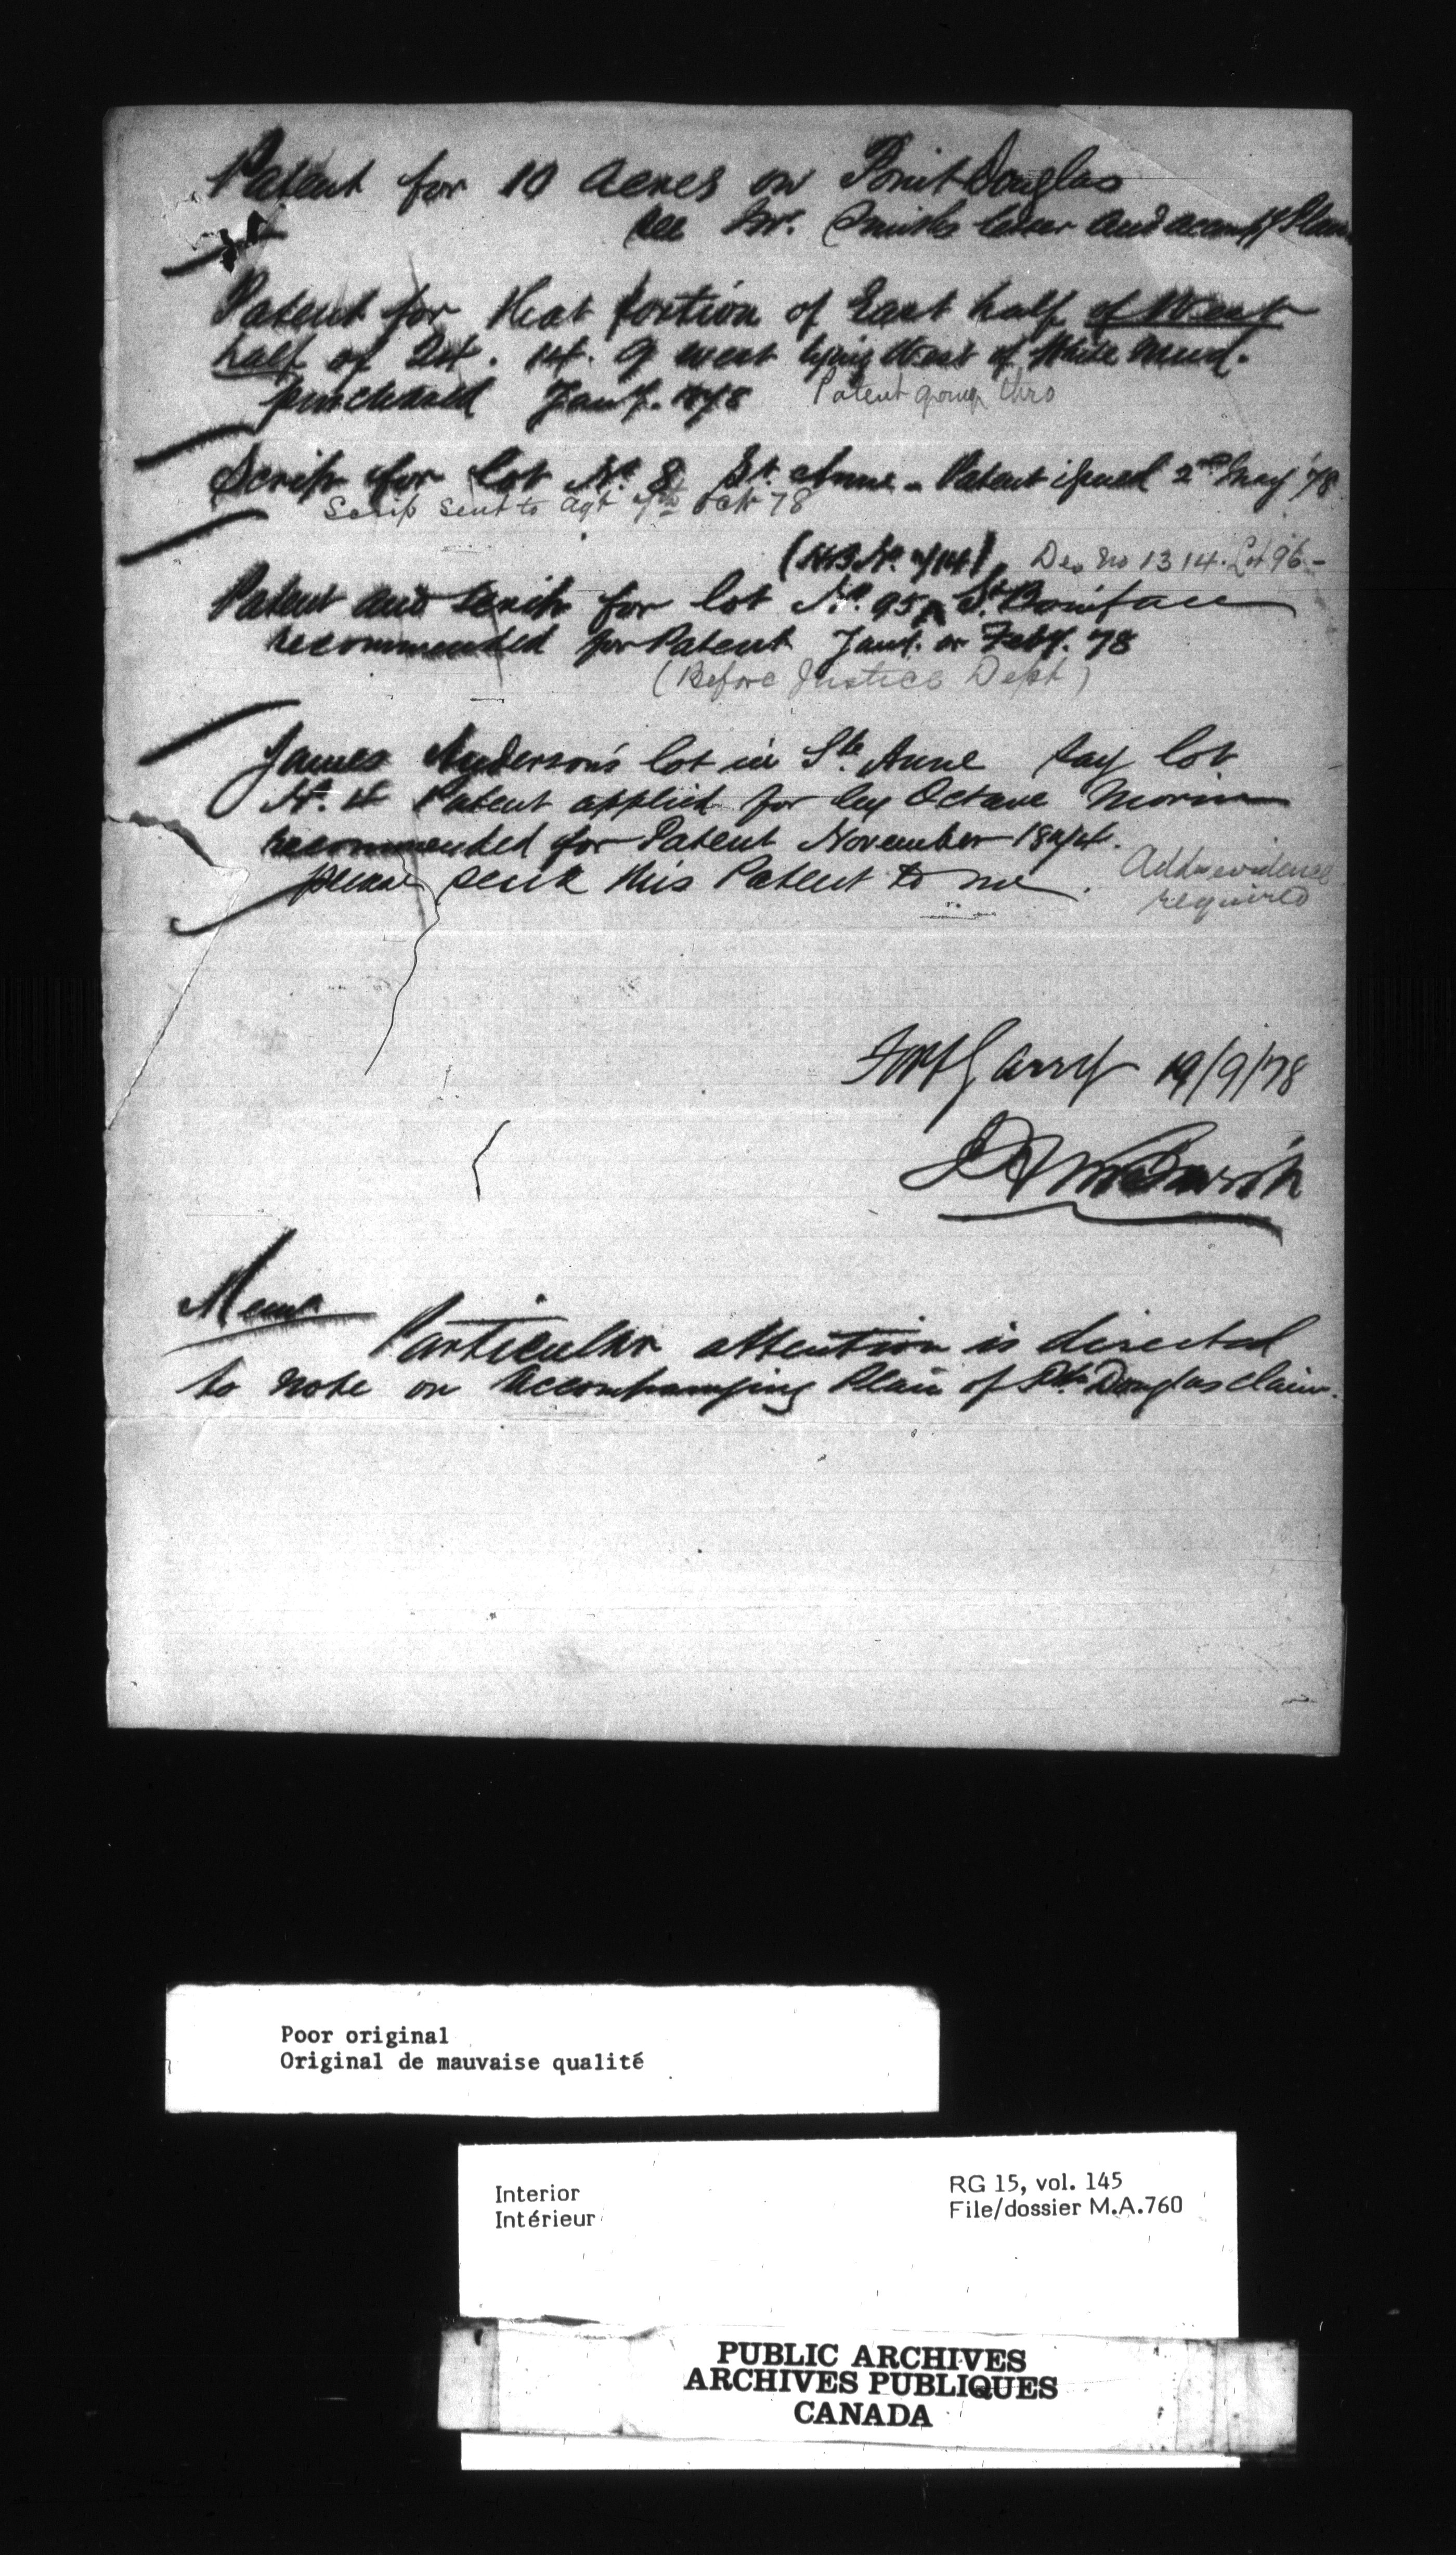 Patent for 10 acres on Point Douglas
see Mr. Smith's letter and accompg Plan
Patent for that portion of East half of West
half of 24. 14. 9 West lying West of White Mud.
purchased Jany. 1878 Patent going thro
Scrip for lot No. 8 St. Anne - Patent issued 2nd May '78
Scrip sent to Agt Octr 78
Des No 1314. Lot 96 -
Patent and scrip for lot No. 95 St. Boniface
recommended for Patent Jany. or Feby. 78
(Before Justice Dept)
James Anderson's lot in Ste. Anne say lot
No. 4 Patent applied for by Octave Morin
recommended for Patent November 1874.
please send this Patent to me. Addn evidence
required
Fort Garry 19/9/78
Memo
Particular attention is directed
to note on accompanying Plan of Pt. Douglas claim.
Poor original
Original de mauvaise qualité
Interior
Intérieur
RG 15, vol. 145
File/dossier M.A.760
PUBLIC ARCHIVES
ARCHIVES PUBLIQUES
CANADA